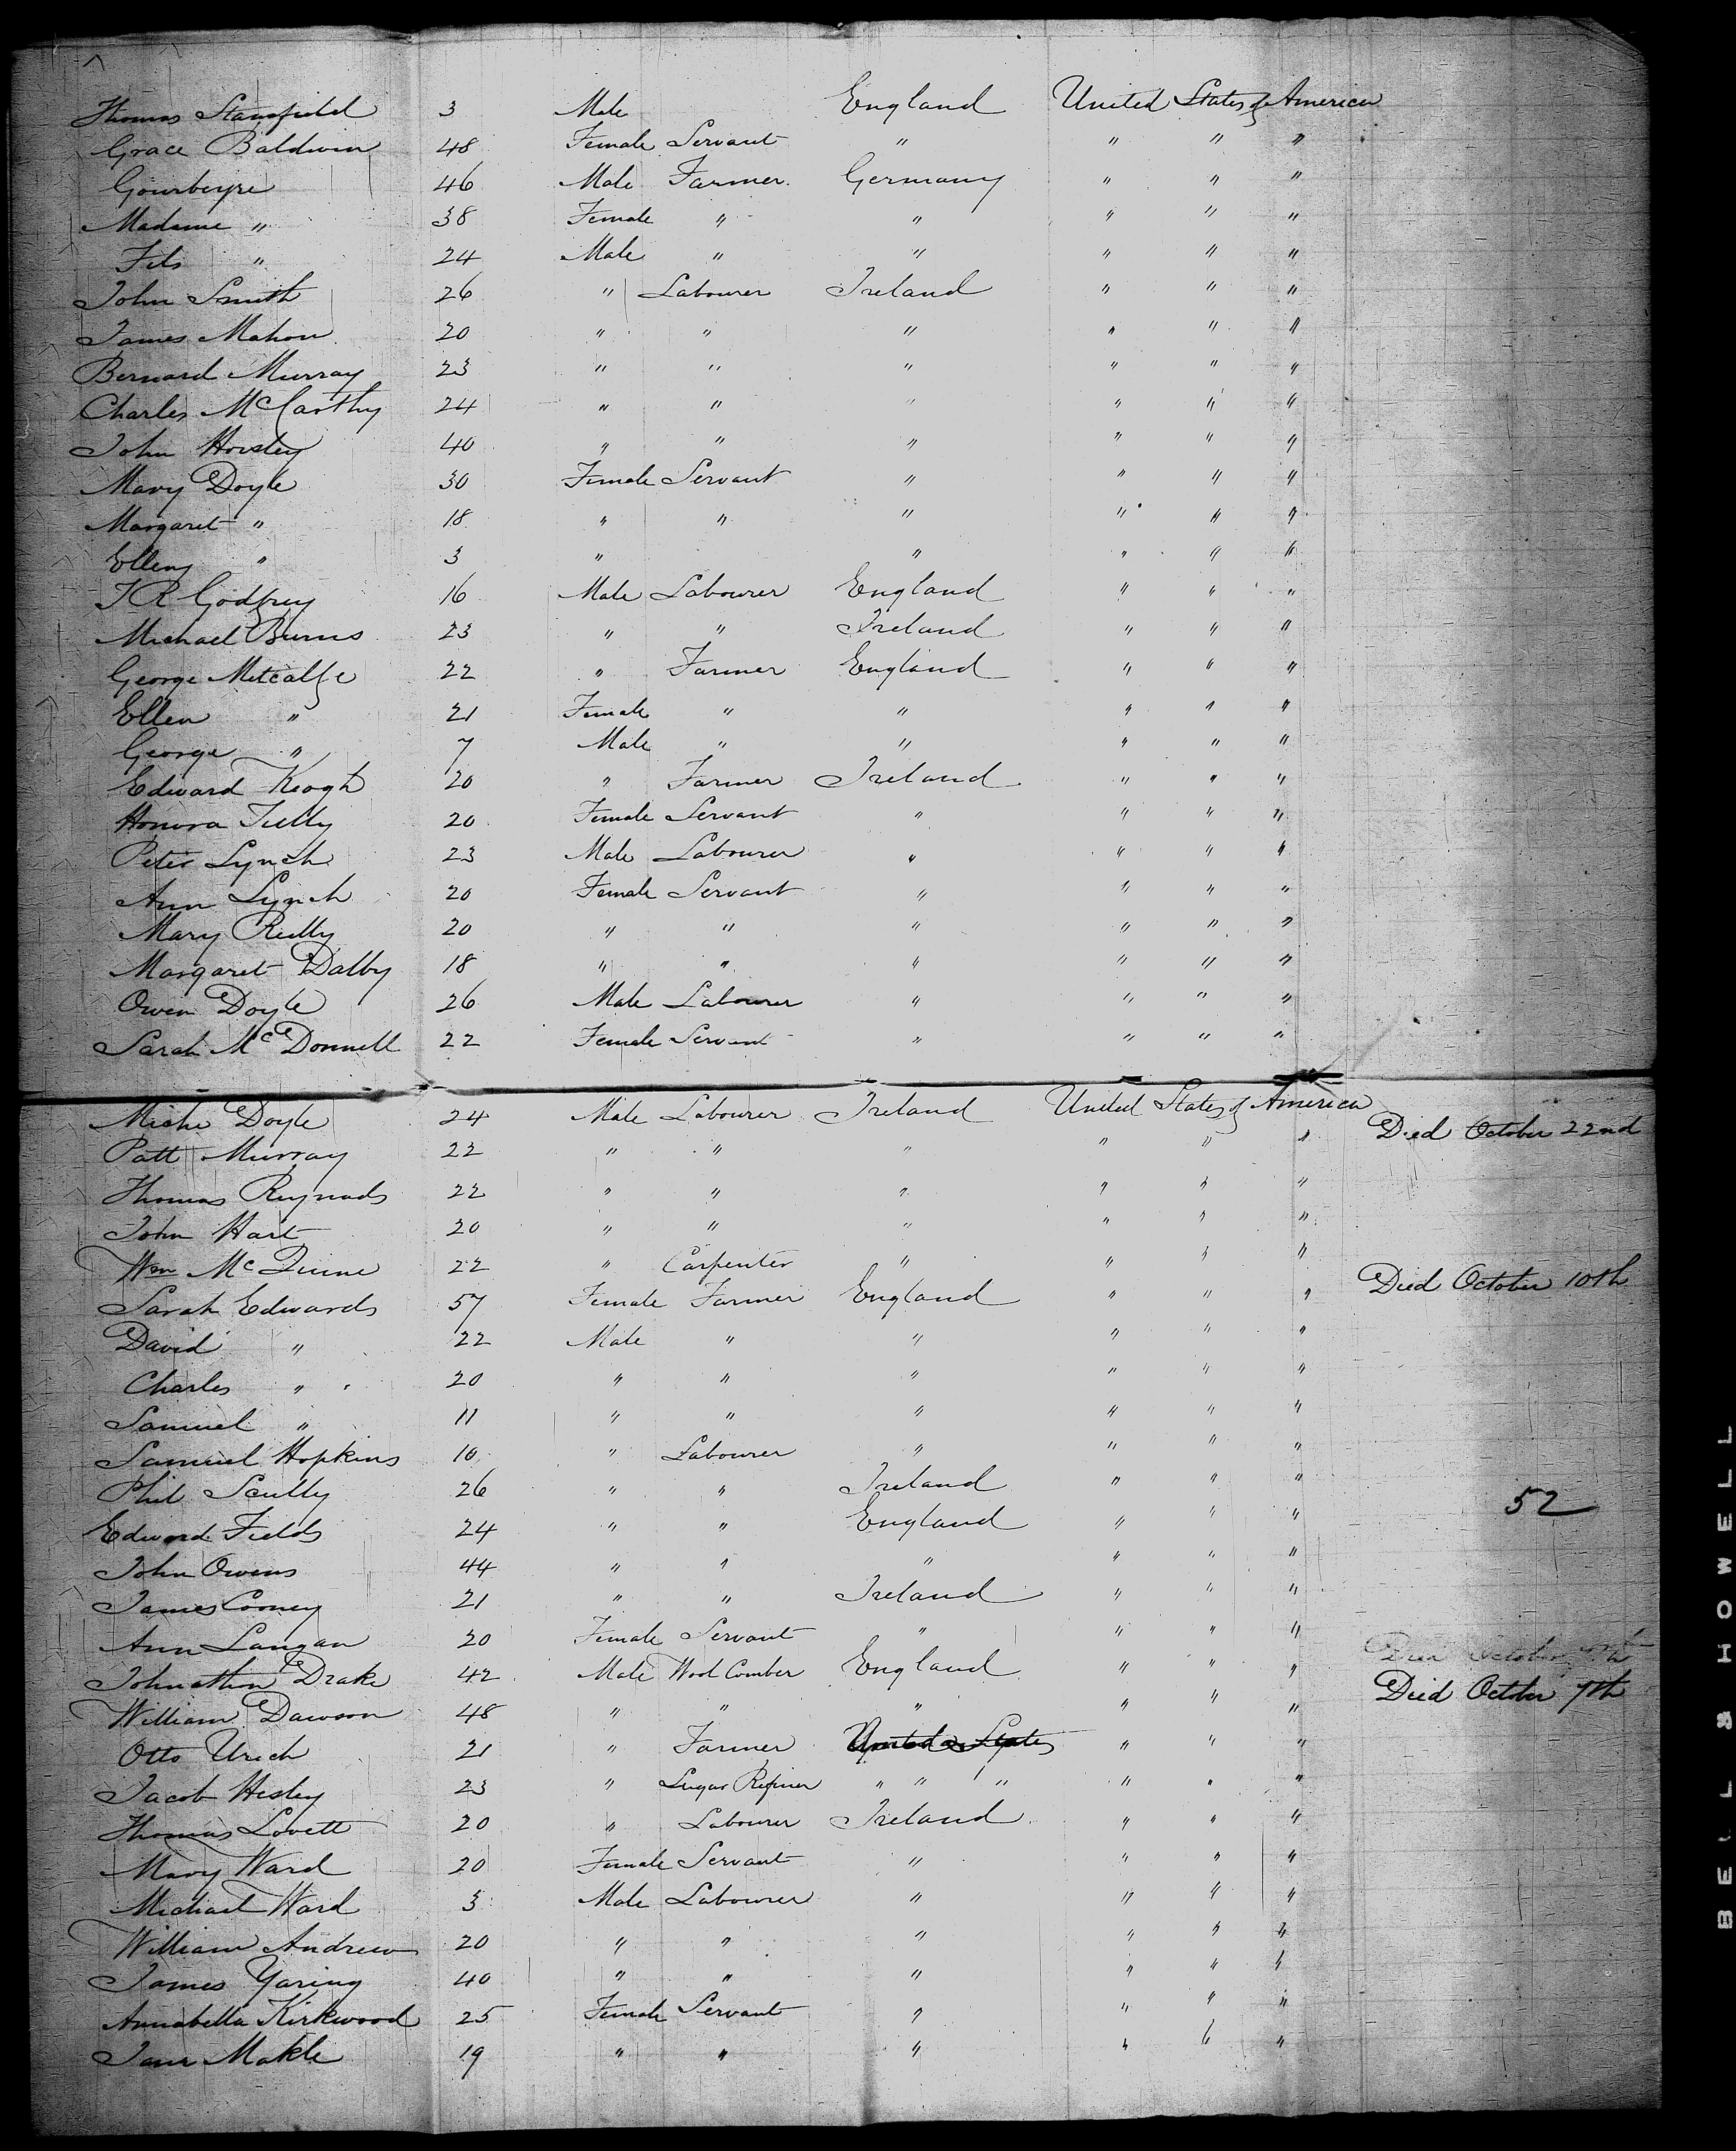 Thomas Stansfield 3 Male England United States of America
Grace Baldwin 48 Female Servant " " " "
Gourbeyre 46 Male Farmer Germany " " "
Madame " 38 Female " " " " "
Fils " 24 Male " " " " "
John Smith 26 " Labourer Ireland " " "
James Mahon 20 " " " " " "
Bernard Murray 23 " " " " " "
Charles McCarthy 24 " " " " " "
John Horsley 40 " " " " " "
Mary Doyle 30 Female Servant " " " "
Margaret " 18 " " " " " "
Ellen " 3 " " " " "
J R Godfrey 16 Male Labourer England " " "
Michael Burns 23 " " Ireland " " "
George Metcalfe 22 " Farmer England " " "
Ellen " 21 Female " " " " "
George " 7 Male " " " " "
Edward Keogh 20 " Farmer Ireland " " "
Honora Tully 20 Female Servant " " " "
Peter Lynch 23 Male Labourer " " " "
Ann Lynch 20 Female Servant " " " "
Mary Reilly 20 " " " " " "
Margaret Dalby 18 " " " " " "
Owen Doyle 26 Male Labourer " " " "
Sarah McDonnell 22 Female Servant " " " "
Miche Doyle 24 Male Labourer Ireland United States of America
Patt Murray 22 " " " " " " Died October 22nd
Thomas Reynods 22 " " " " " "
John Hart 20 " " " " " "
Wm McQuine 22 " Carpenter " " " "
Sarah Edwards 57 Female Farmer England " " " Died October 10th
David " 22 Male " " " " "
Charles " 20 " " " " " "
Samuel " 11 " " " " " "
Samuel Hopkins 10 " Labourer " " " "
Phil Scully 26 " " Ireland " " "
Edward Fields 24 " " England " " " 52
John Owens 44 " " " " " "
James Cooney 21 " " Ireland " " "
Ann Langan 20 Female Servant " " " "
Johnathon Drake 42 Male Wool Comber England " " " Died October
William Dawson 48 " " " " " " Died October 7th
Otto Urich 21 " Farmer United States " " "
Jacob Hesley 23 " Sugar Refiner " " " " " "
Thomas Lovett 20 " Labourer Ireland " " "
Mary Ward 20 Female Servant " " " "
Michael Ward 3 Male Labourer " " " "
William Andrew 20 " " " " " "
James Yaring 40 " " " " " "
Annabella Kirkwood 25 Female Servant " " " "
Jane Makle 19 " " " " " "
BELL & HOWELL